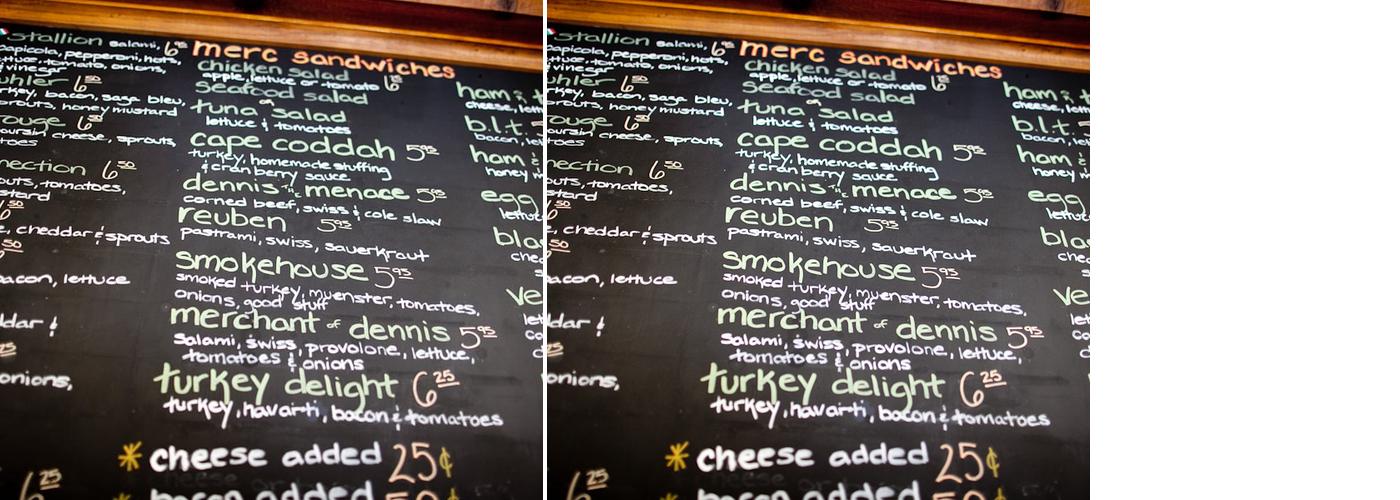 stallion salami, 6
capicola, pepperoni, hots,
tomato, onions,
vinegar
6 50
bacon, saga bleu,
sprouts, honey mustard
6 50
cheese, sprouts,
6 50
tomatoes,
50
cheddar & sprouts
50
bacon, lettuce
&
25
onions,
6 25
merc sandwiches
chicken salad
apple, lettuce or tomato 6
seafood salad
or
tuna salad
lettuce & tomatoes
cape coddah 5 95
turkey, homemade stuffing
& cranberry sauce
dennis the menace 5 95
corned beef, swiss & cole slaw
reuben 5 95
pastrami, swiss, sauerkraut
smokehouse 5 95
smoked turkey, muenster, tomatoes,
onions, good stuff
merchant of dennis 5 95
salami, swiss, provolone, lettuce,
tomatoes & onions
turkey delight 6 25
turkey, havarti, bacon & tomatoes
* cheese added 25¢
* bacon added 50¢
ham &
cheese,
b.l.t.
bacon,
ham &
honey
egg
stallion salami, 6
capicola, pepperoni, hots,
tomato, onions,
vinegar
6 50
bacon, saga bleu,
sprouts, honey mustard
6 50
cheese, sprouts,
6 50
tomatoes,
50
cheddar & sprouts
50
bacon, lettuce
&
25
onions,
6 25
merc sandwiches
chicken salad
apple, lettuce or tomato 6
seafood salad
or
tuna salad
lettuce & tomatoes
cape coddah 5 95
turkey, homemade stuffing
& cranberry sauce
dennis the menace 5 95
corned beef, swiss & cole slaw
reuben 5 95
pastrami, swiss, sauerkraut
smokehouse 5 95
smoked turkey, muenster, tomatoes,
onions, good stuff
merchant of dennis 5 95
salami, swiss, provolone, lettuce,
tomatoes & onions
turkey delight 6 25
turkey, havarti, bacon & tomatoes
* cheese added 25¢
* bacon added 50¢
ham &
cheese,
b.l.t.
bacon,
ham &
honey
egg